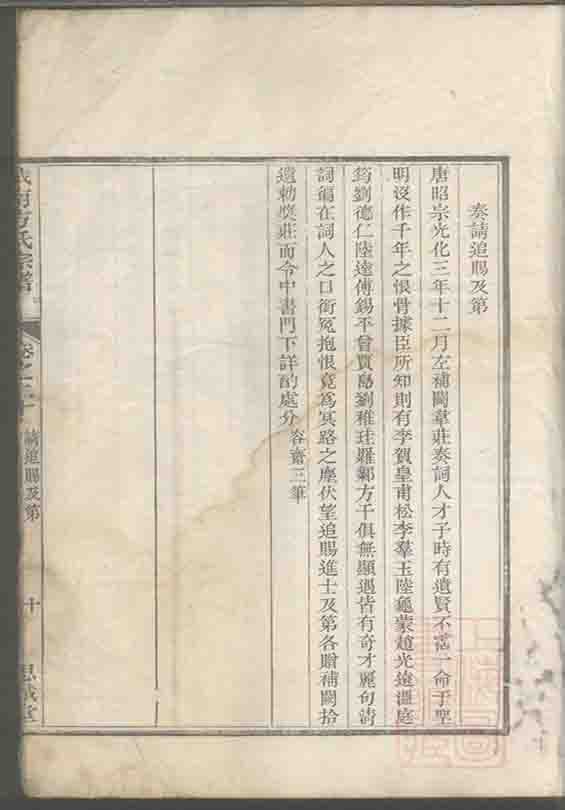 奏請追賜及第
唐昭宗光化三年十二月左補闕韋莊奏詞人才子時有遺賢不霑一命于聖
明没作千年之恨骨據臣所知則有李賀皇甫松李羣玉陸龜蒙趙光遠溫庭
筠劉德仁陸逵傅錫平曾賈島劉稚珪羅鄴方干俱無顯遇皆有奇才麗句清
詞徧在詞人之口銜冤抱恨竟爲冥路之塵伏望追賜進士及第各贈補闕拾
遺勅奬莊而令中書門下詳酌處分 容齋三筆
方氏宗譜
卷之二十
請追賜及第
十